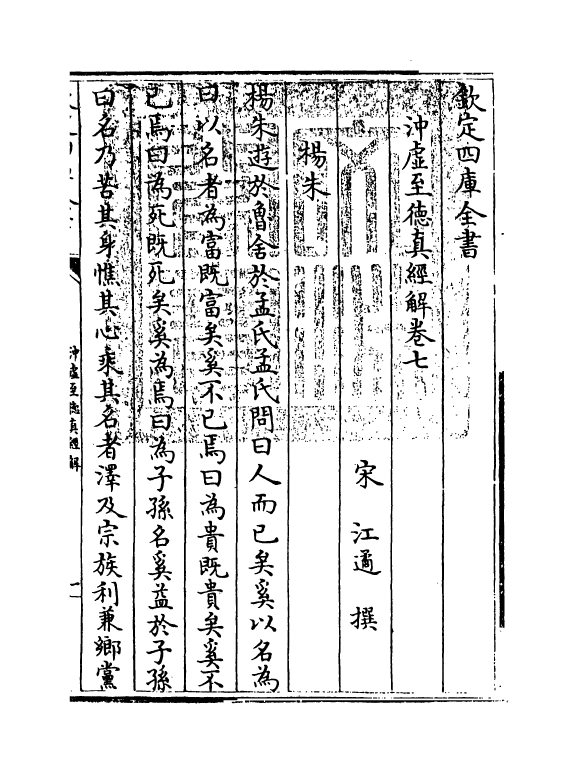 欽定四庫全書
沖虛至德真經解卷七
宋 江遹 撰
楊朱
楊朱遊於魯舍於孟氏孟氏問曰人而已矣奚以名為
曰以名者為富既富矣奚不已焉曰為貴既貴矣奚不
已焉曰為死既死矣奚為焉曰為子孫名奚益於子孫
曰名乃苦其身憔其心乗其名者澤及宗族利兼鄉黨
沖虛至德真經解
一